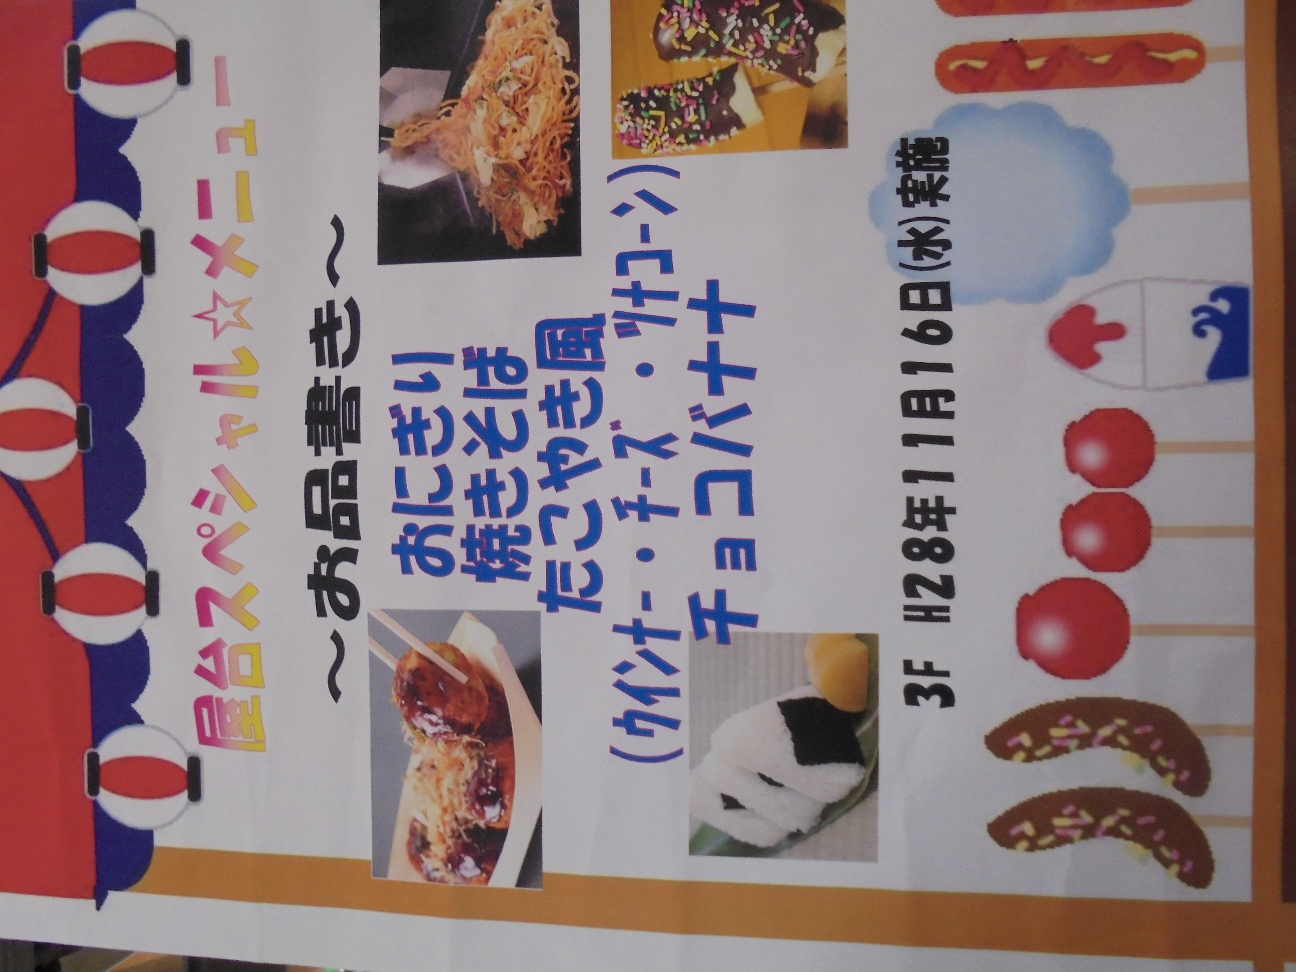 屋台スペシャル☆メニュー
～お品書き～
おにぎり
焼きそば
たこやき風
(ウインナー・チーズ・ツナコーン)
チョコバナナ
3F H28年11月16日(水)実施